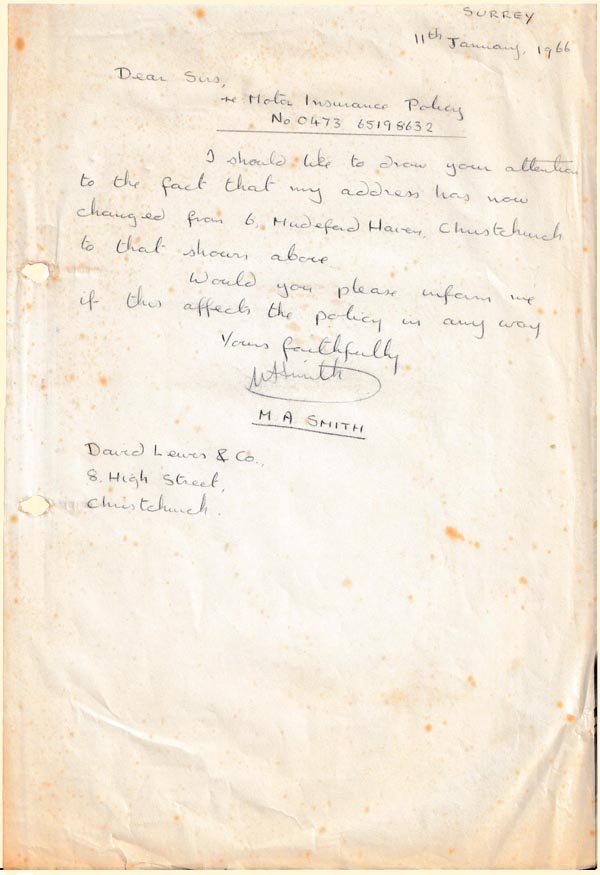 SURREY
11th January, 1966
Dear Sirs,
re Motor Insurance Policy
No 0473 65198632
I should like to draw your attention
to the fact that my address has now
changed from 6, Mudeford Haven, Christchurch
to that shown above
Would you please inform me
if this affects the policy in any way
Yours faithfully
MASmith
M. A SMITH
David Lewis & Co.,
8. High Street,
Christchurch.